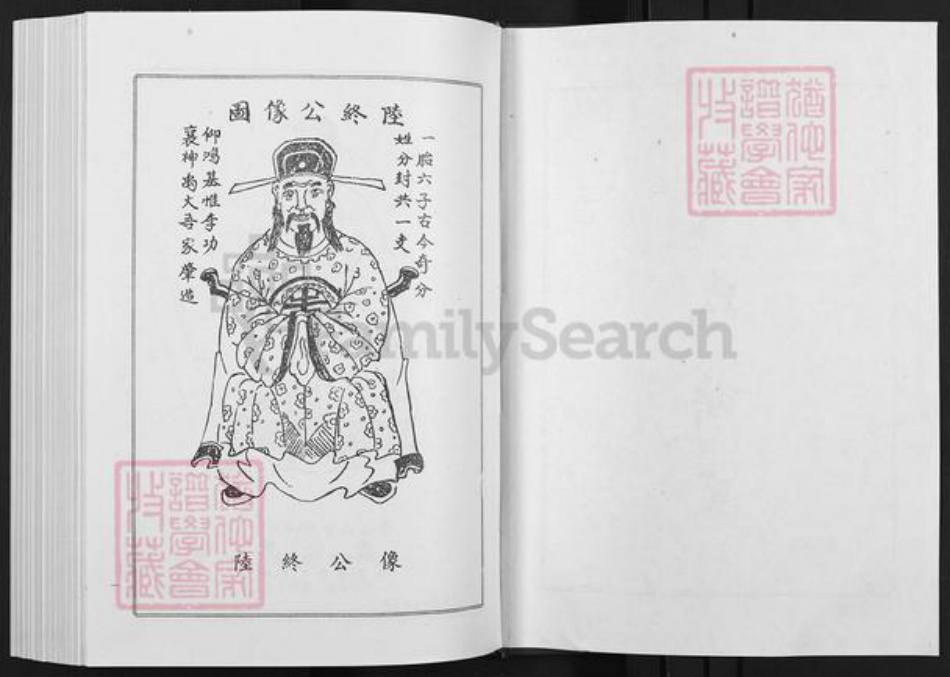 陸終公像圖
一胎六子古今奇分
姓分封共一支
仰鴻基惟李功
襄神為大吾家肇造
陸終公像
FamilySearch
譜學會
收藏
譜學會
收藏